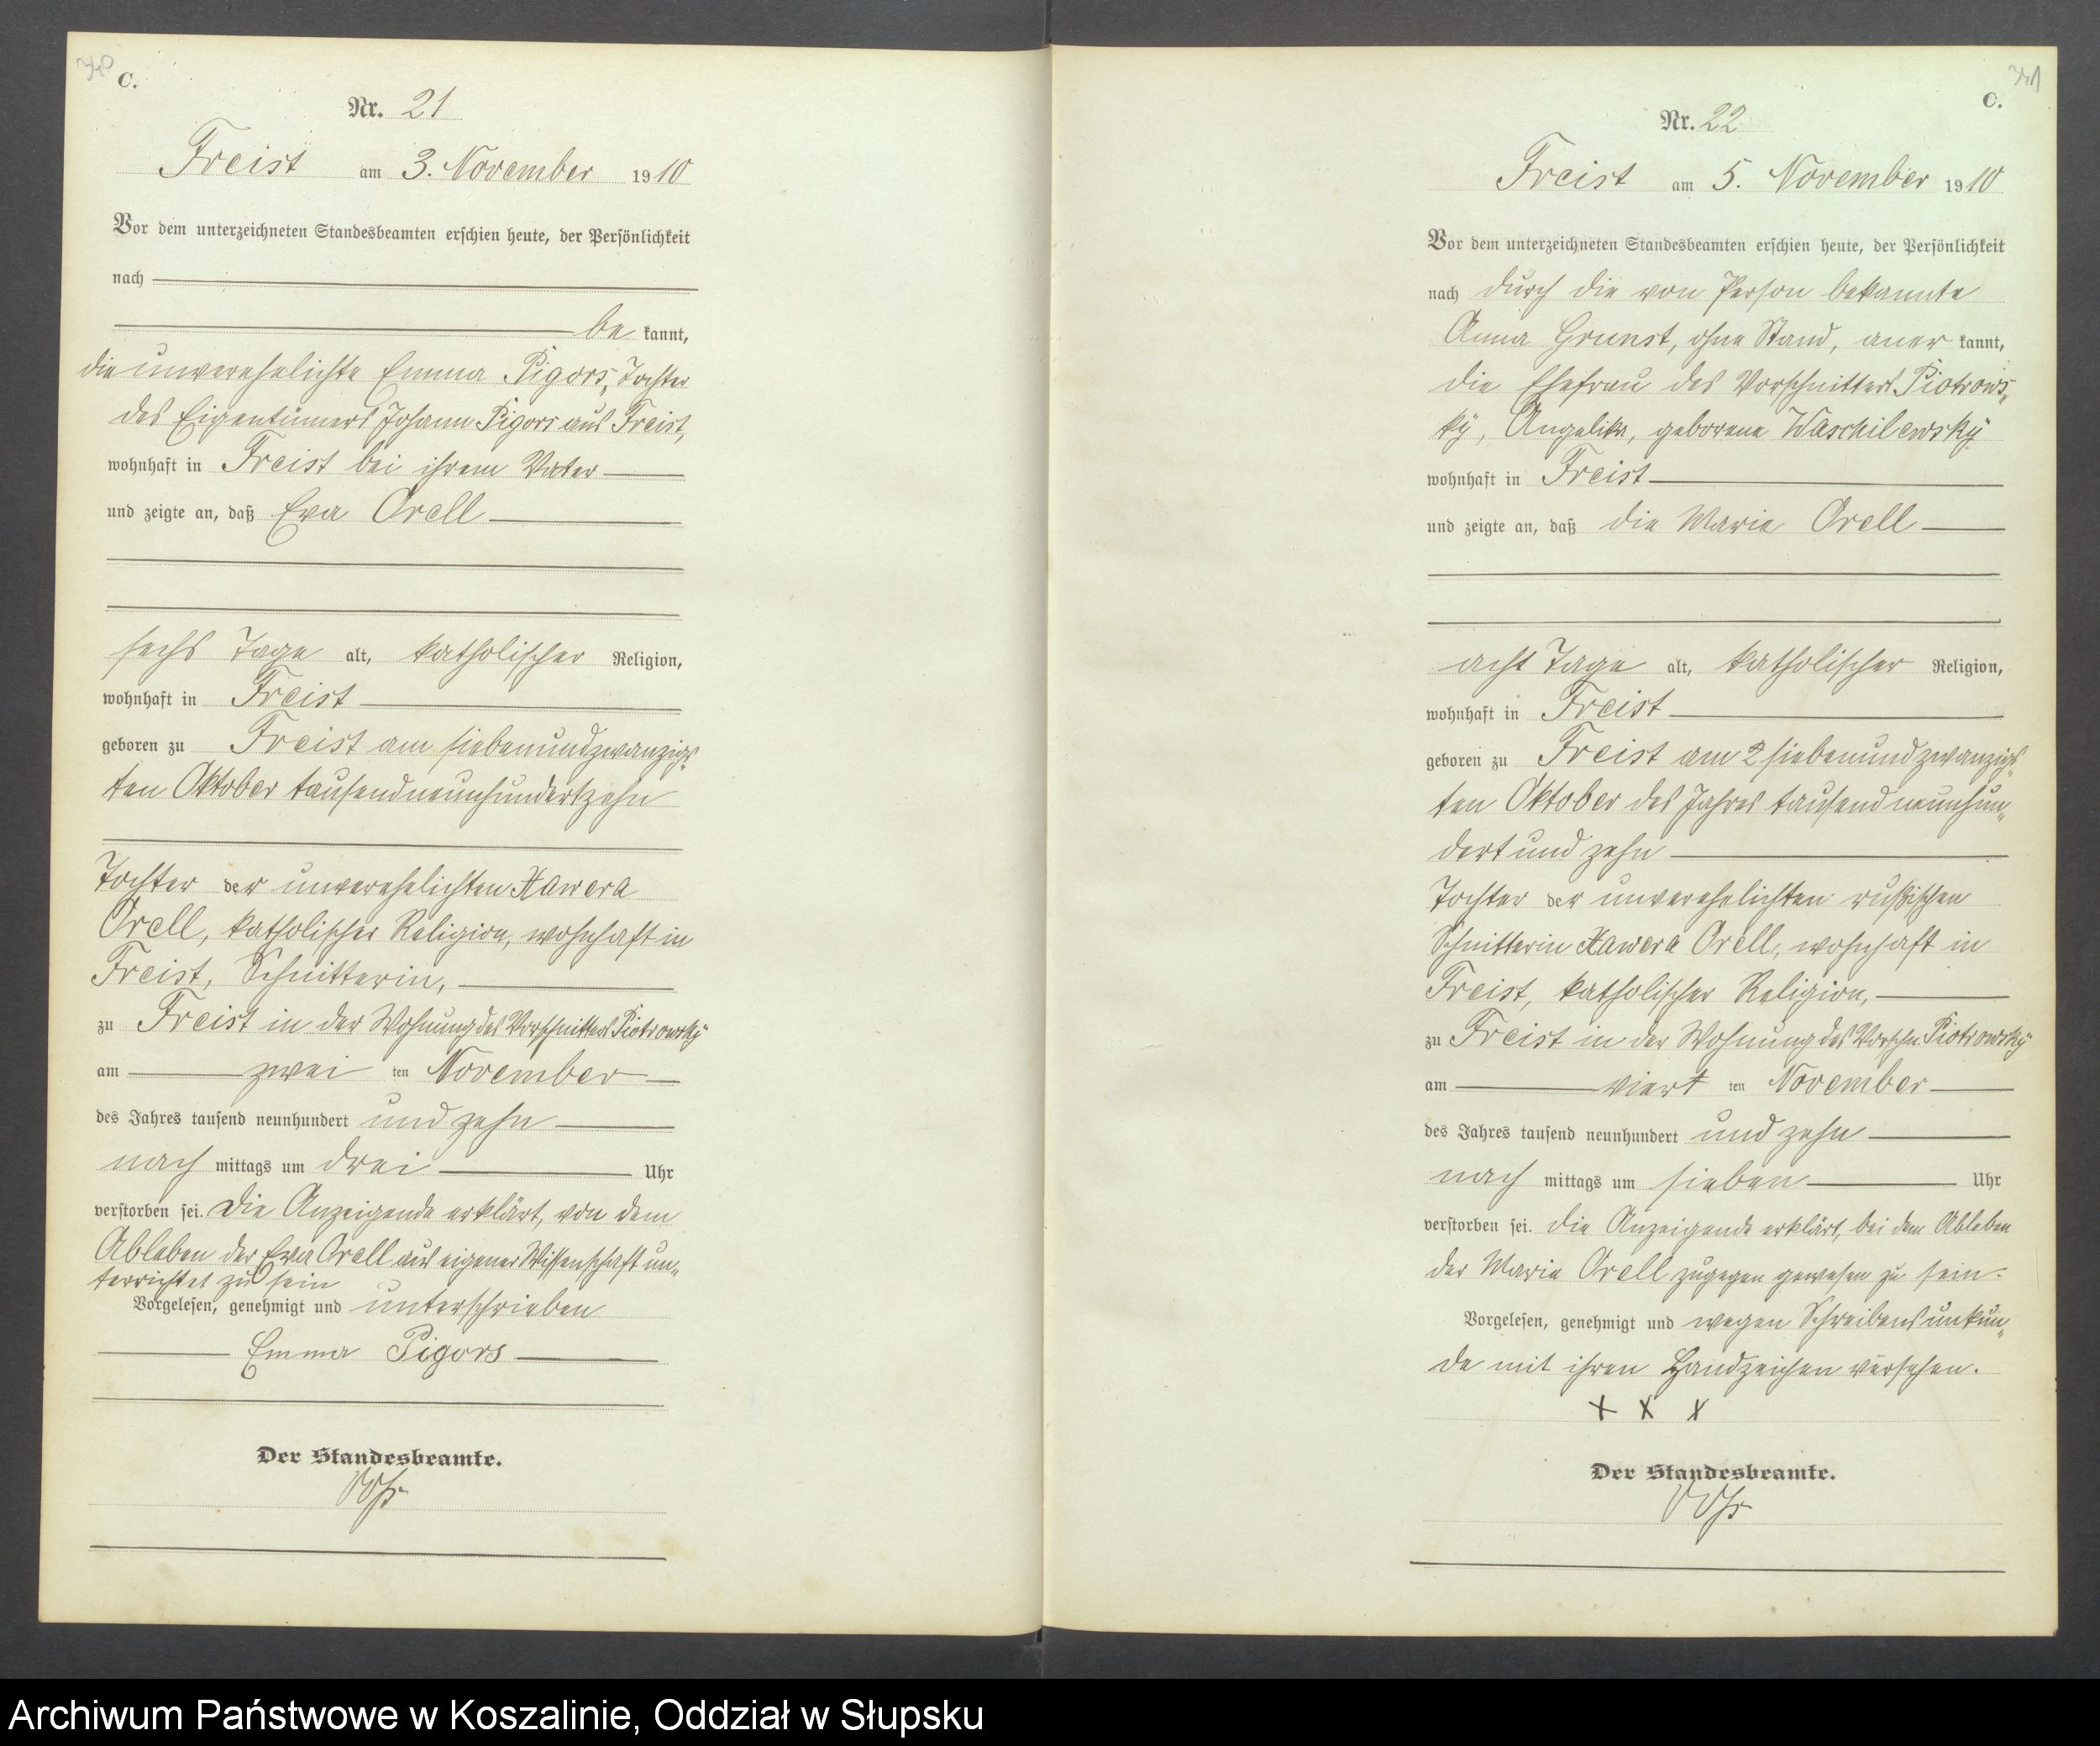 340
C.
Nr. 21
Freist am 3. November 1910
Vor dem unterzeichneten Standesbeamten erschien heute, der Persönlichkeit
nach
be kannt,
die unverehelichte Emma Pigors, Tochter
des Eigentümers Johann Pigors aus Freist,
wohnhaft in Freist bei ihrem Vater
und zeigte an, daß Eva Orell
sechs Tage alt, katholischer Religion,
wohnhaft in Freist
geboren zu Freist am siebenundzwanzigs-
ten Oktober tausendneunhundertzehn
Tochter der unverehelichten Xawera
Orell, katholischer Religion, wohnhaft in
Freist, Schnitterin,
zu Freist in der Wohnung des Vorschnitters Piotrowsky
am zwei ten November
des Jahres tausend neunhundert und zehn
nach mittags um drei Uhr
verstorben sei. Die Anzeigende erklärt, von dem
Ableben der Eva Orell aus eigener Wissenschaft un-
terrichtet zu sein
Vorgelesen, genehmigt und unterschrieben
Emma Pigors
Der Standesbeamte.
341
C.
Nr. 22
Freist am 5. November 1910
Vor dem unterzeichneten Standesbeamten erschien heute, der Persönlichkeit
nach durch die von Person bekannte
Anna Grunst, ohne Stand, aner kannt,
die Ehefrau des Vorschnitters Piotrows-
ky, Angelika, geborene Waschilewsky
wohnhaft in Freist
und zeigte an, daß die Marie Orell
acht Tage alt, katholischer Religion,
wohnhaft in Freist
geboren zu Freist am siebenundzwanzigs-
ten Oktober des Jahres tausend neunhun-
dert und zehn
Tochter der unverehelichten russischen
Schnitterin Xawera Orell, wohnhaft in
Freist, katholischer Religion,
zu Freist in der Wohnung des Vorschn. Piotrowsky
am viert ten November
des Jahres tausend neunhundert und zehn
nach mittags um sieben Uhr
verstorben sei. Die Anzeigende erklärt, bei dem Ableben
der Marie Orell zugegen gewesen zu sein.
Vorgelesen, genehmigt und wegen Schreibensunkun-
de mit ihren Handzeichen versehen.
x x x
Der Standesbeamte.
Archiwum Państwowe w Koszalinie, Oddział w Słupsku